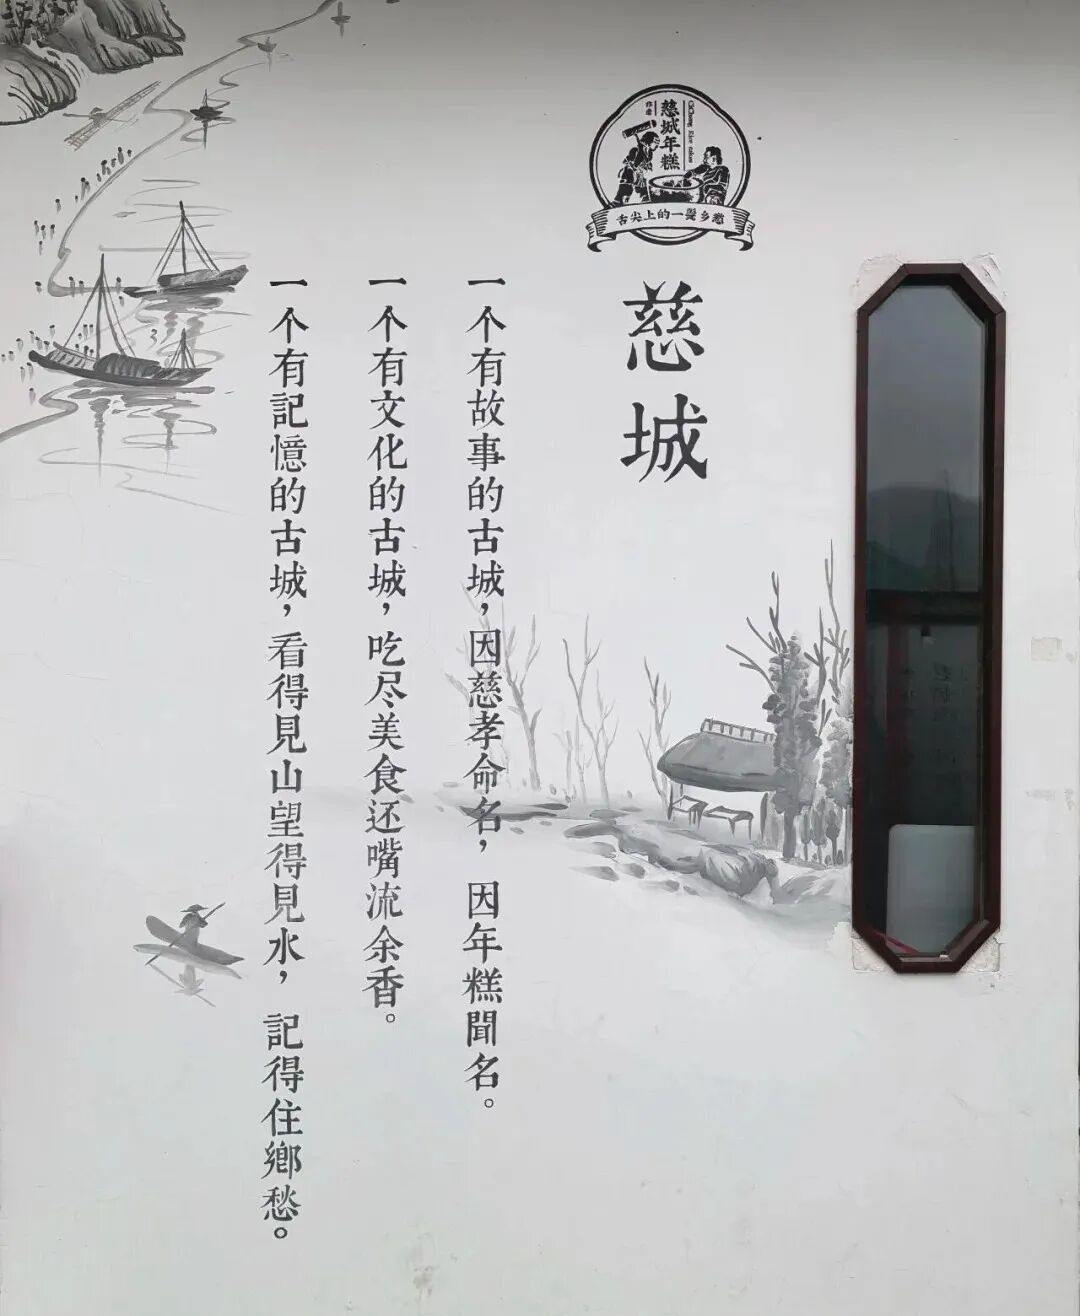 慈城年糕
CiCheng Rice cakes
舌尖上的一聲乡愁
慈城
一个有故事的古城，因慈孝命名，因年糕聞名。
一个有文化的古城，吃尽美食还嘴流余香。
一个有記憶的古城，看得見山望得見水，記得住鄉愁。